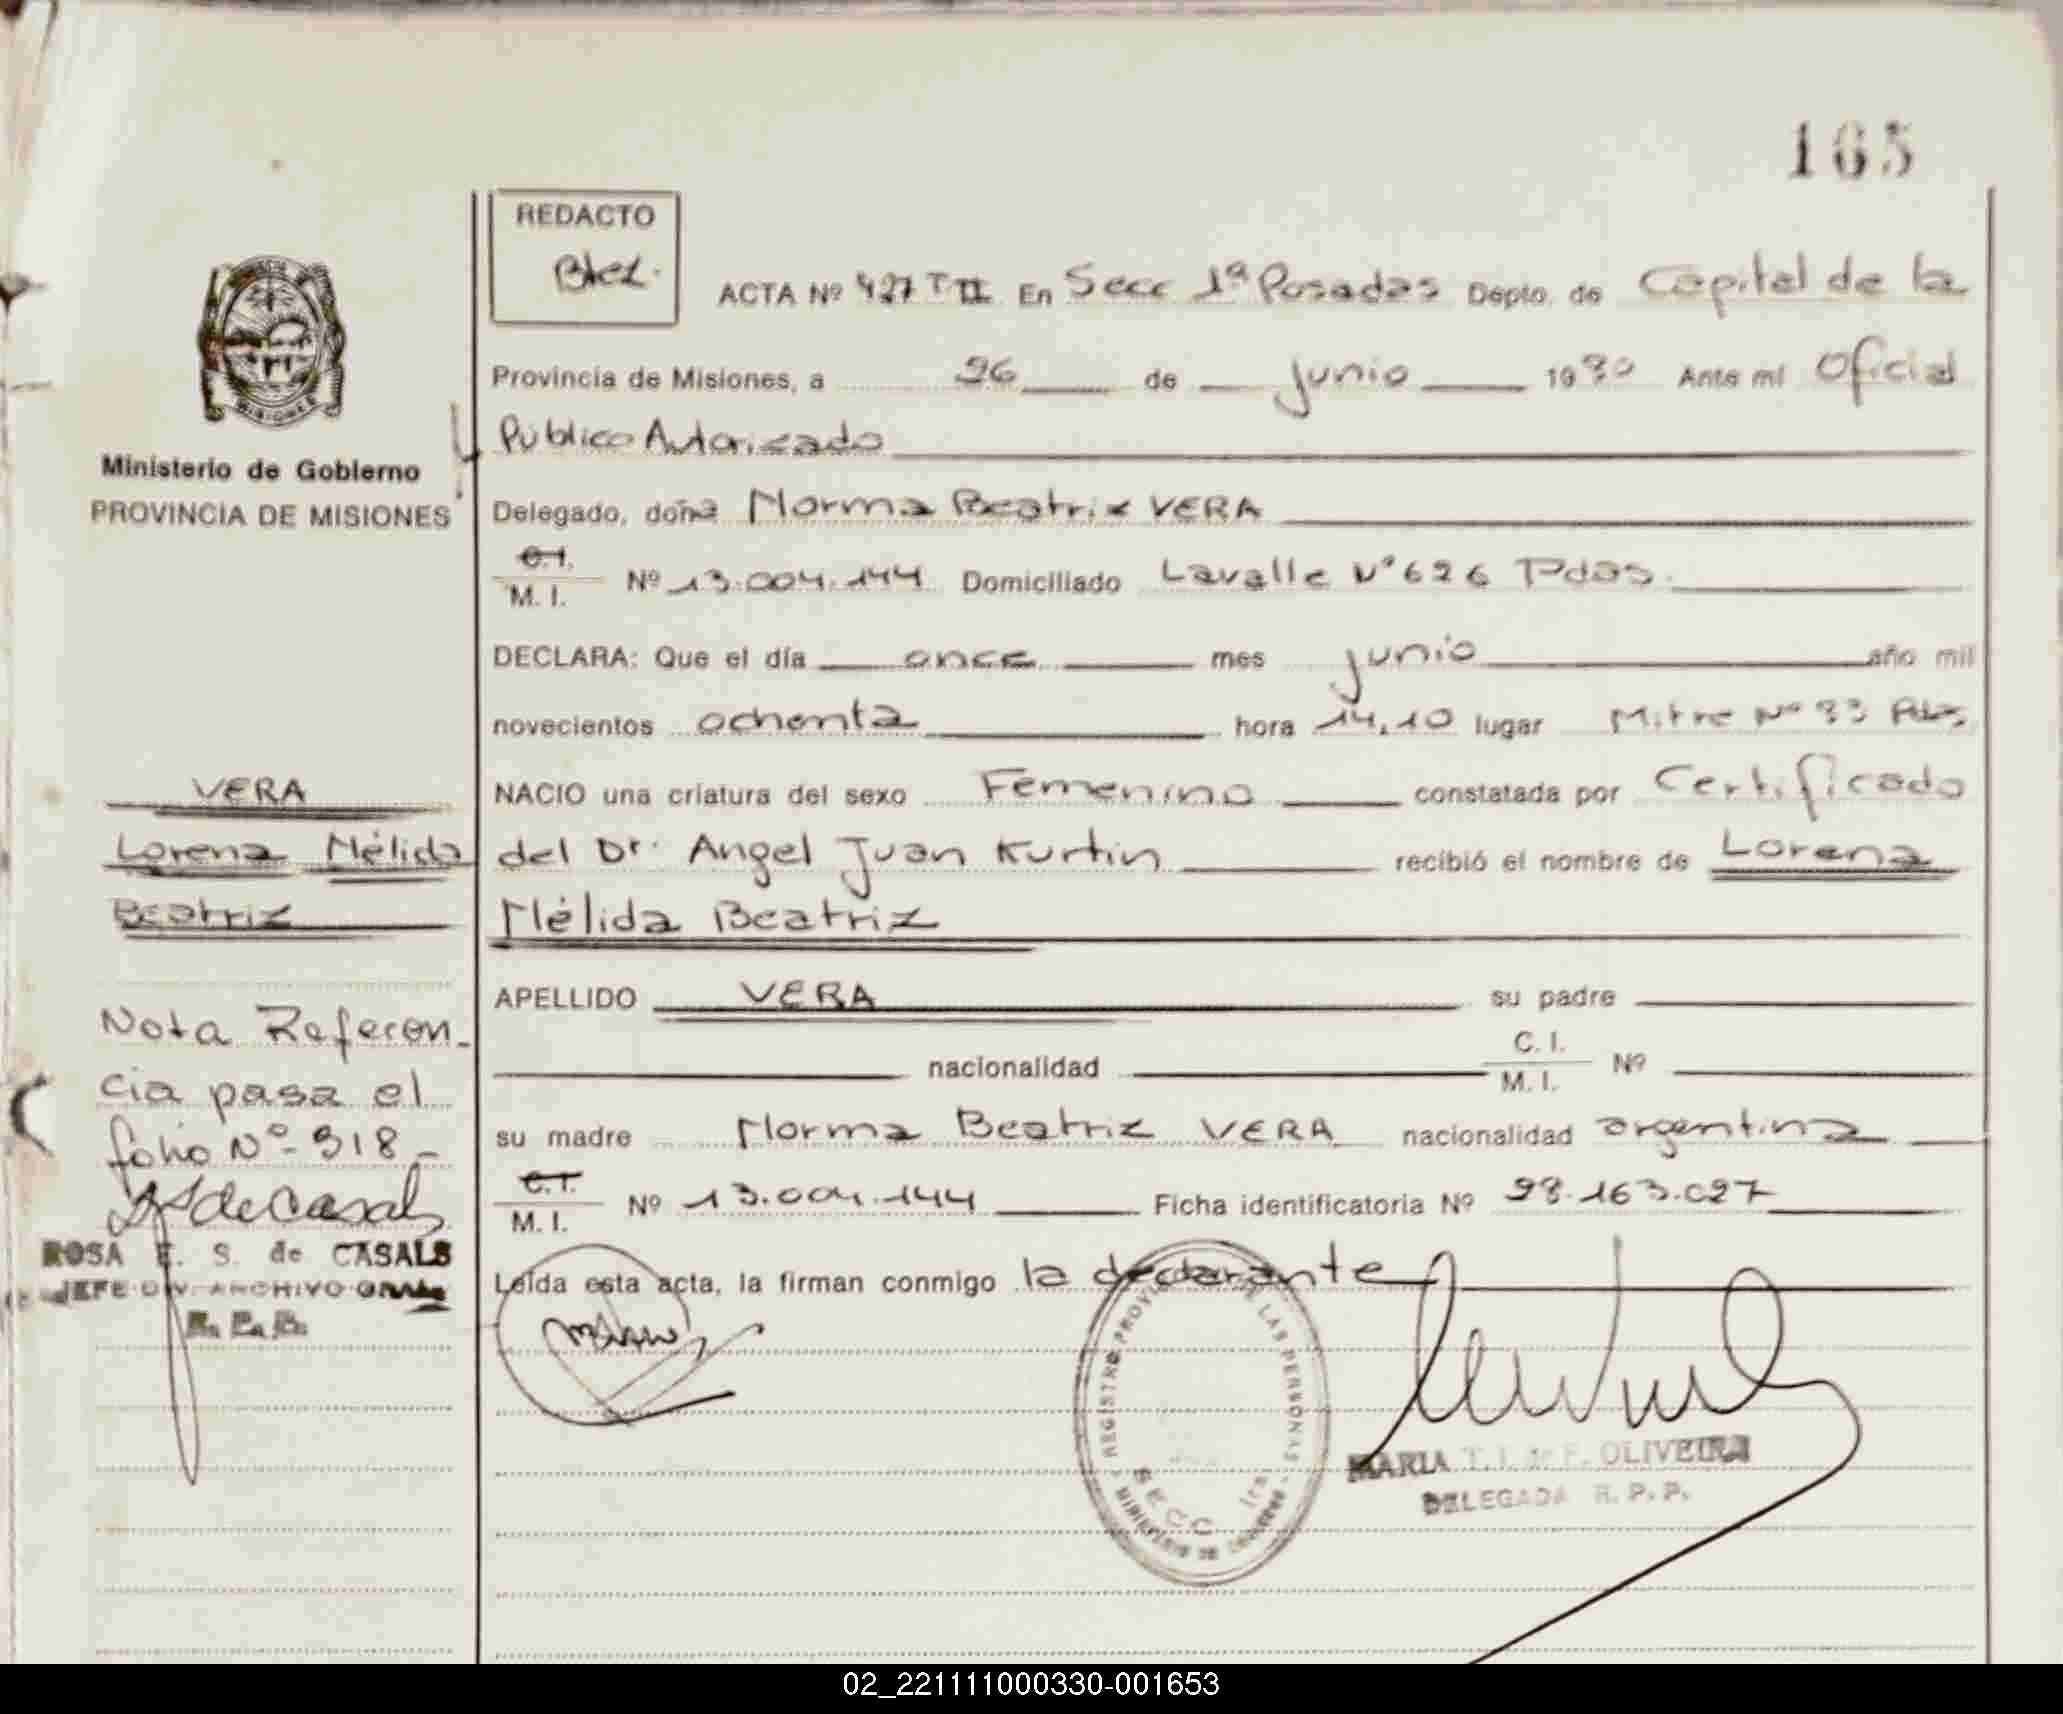 165
REDACTO
ACTA Nº 427 T II En Secc 1ª Posadas Depto. de Capital de la
Provincia de Misiones, a 26 de junio 1980 Ante mí Oficial
Público Autorizado
Ministerio de Gobierno
PROVINCIA DE MISIONES
Delegado, doña Norma Beatriz VERA
C.I.
M. I. Nº 13.004.144 Domiciliado Lavalle Nº 626 Pdas.
DECLARA: Que el día once mes junio año mil
novecientos ochenta hora 14,10 lugar Mitre Nº 33 Pdas
VERA
NACIO una criatura del sexo Femenino constatada por Certificado
Lorena Nélida
del Dr. Angel Juan Kurtin recibió el nombre de Lorena
Beatriz
Nélida Beatriz
APELLIDO VERA su padre
nacionalidad C. I.
M. I. Nº
Nota Referen-
cia pasa el
folio Nº 318-
su madre Norma Beatriz VERA nacionalidad argentina
C.I.
M. I. Nº 13.004.144 Ficha identificatoria Nº 28.163.027
ROSA E. S. de CASALS
JEFE DIV. ARCHIVO GRAL
Leída esta acta, la firman conmigo la declarante
REGISTRO PROVINCIAL DE LAS PERSONAS
SECC 1ra
MINISTERIO DE GOBIERNO
MARIA T. I. de F. OLIVEIRA
DELEGADA R. P. P.
02_221111000330-001653